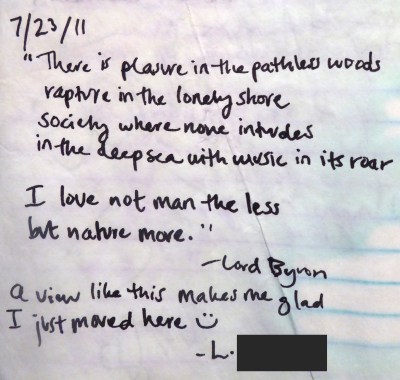 7/23/11
"There is plasure in the pathless woods
rapture in the lonely shore
society where none intrudes
in the deep sea with music in its roar
I love not man the less
but nature more."
-Lord Byron
a view like this makes me glad
I just moved here ☺
-L.